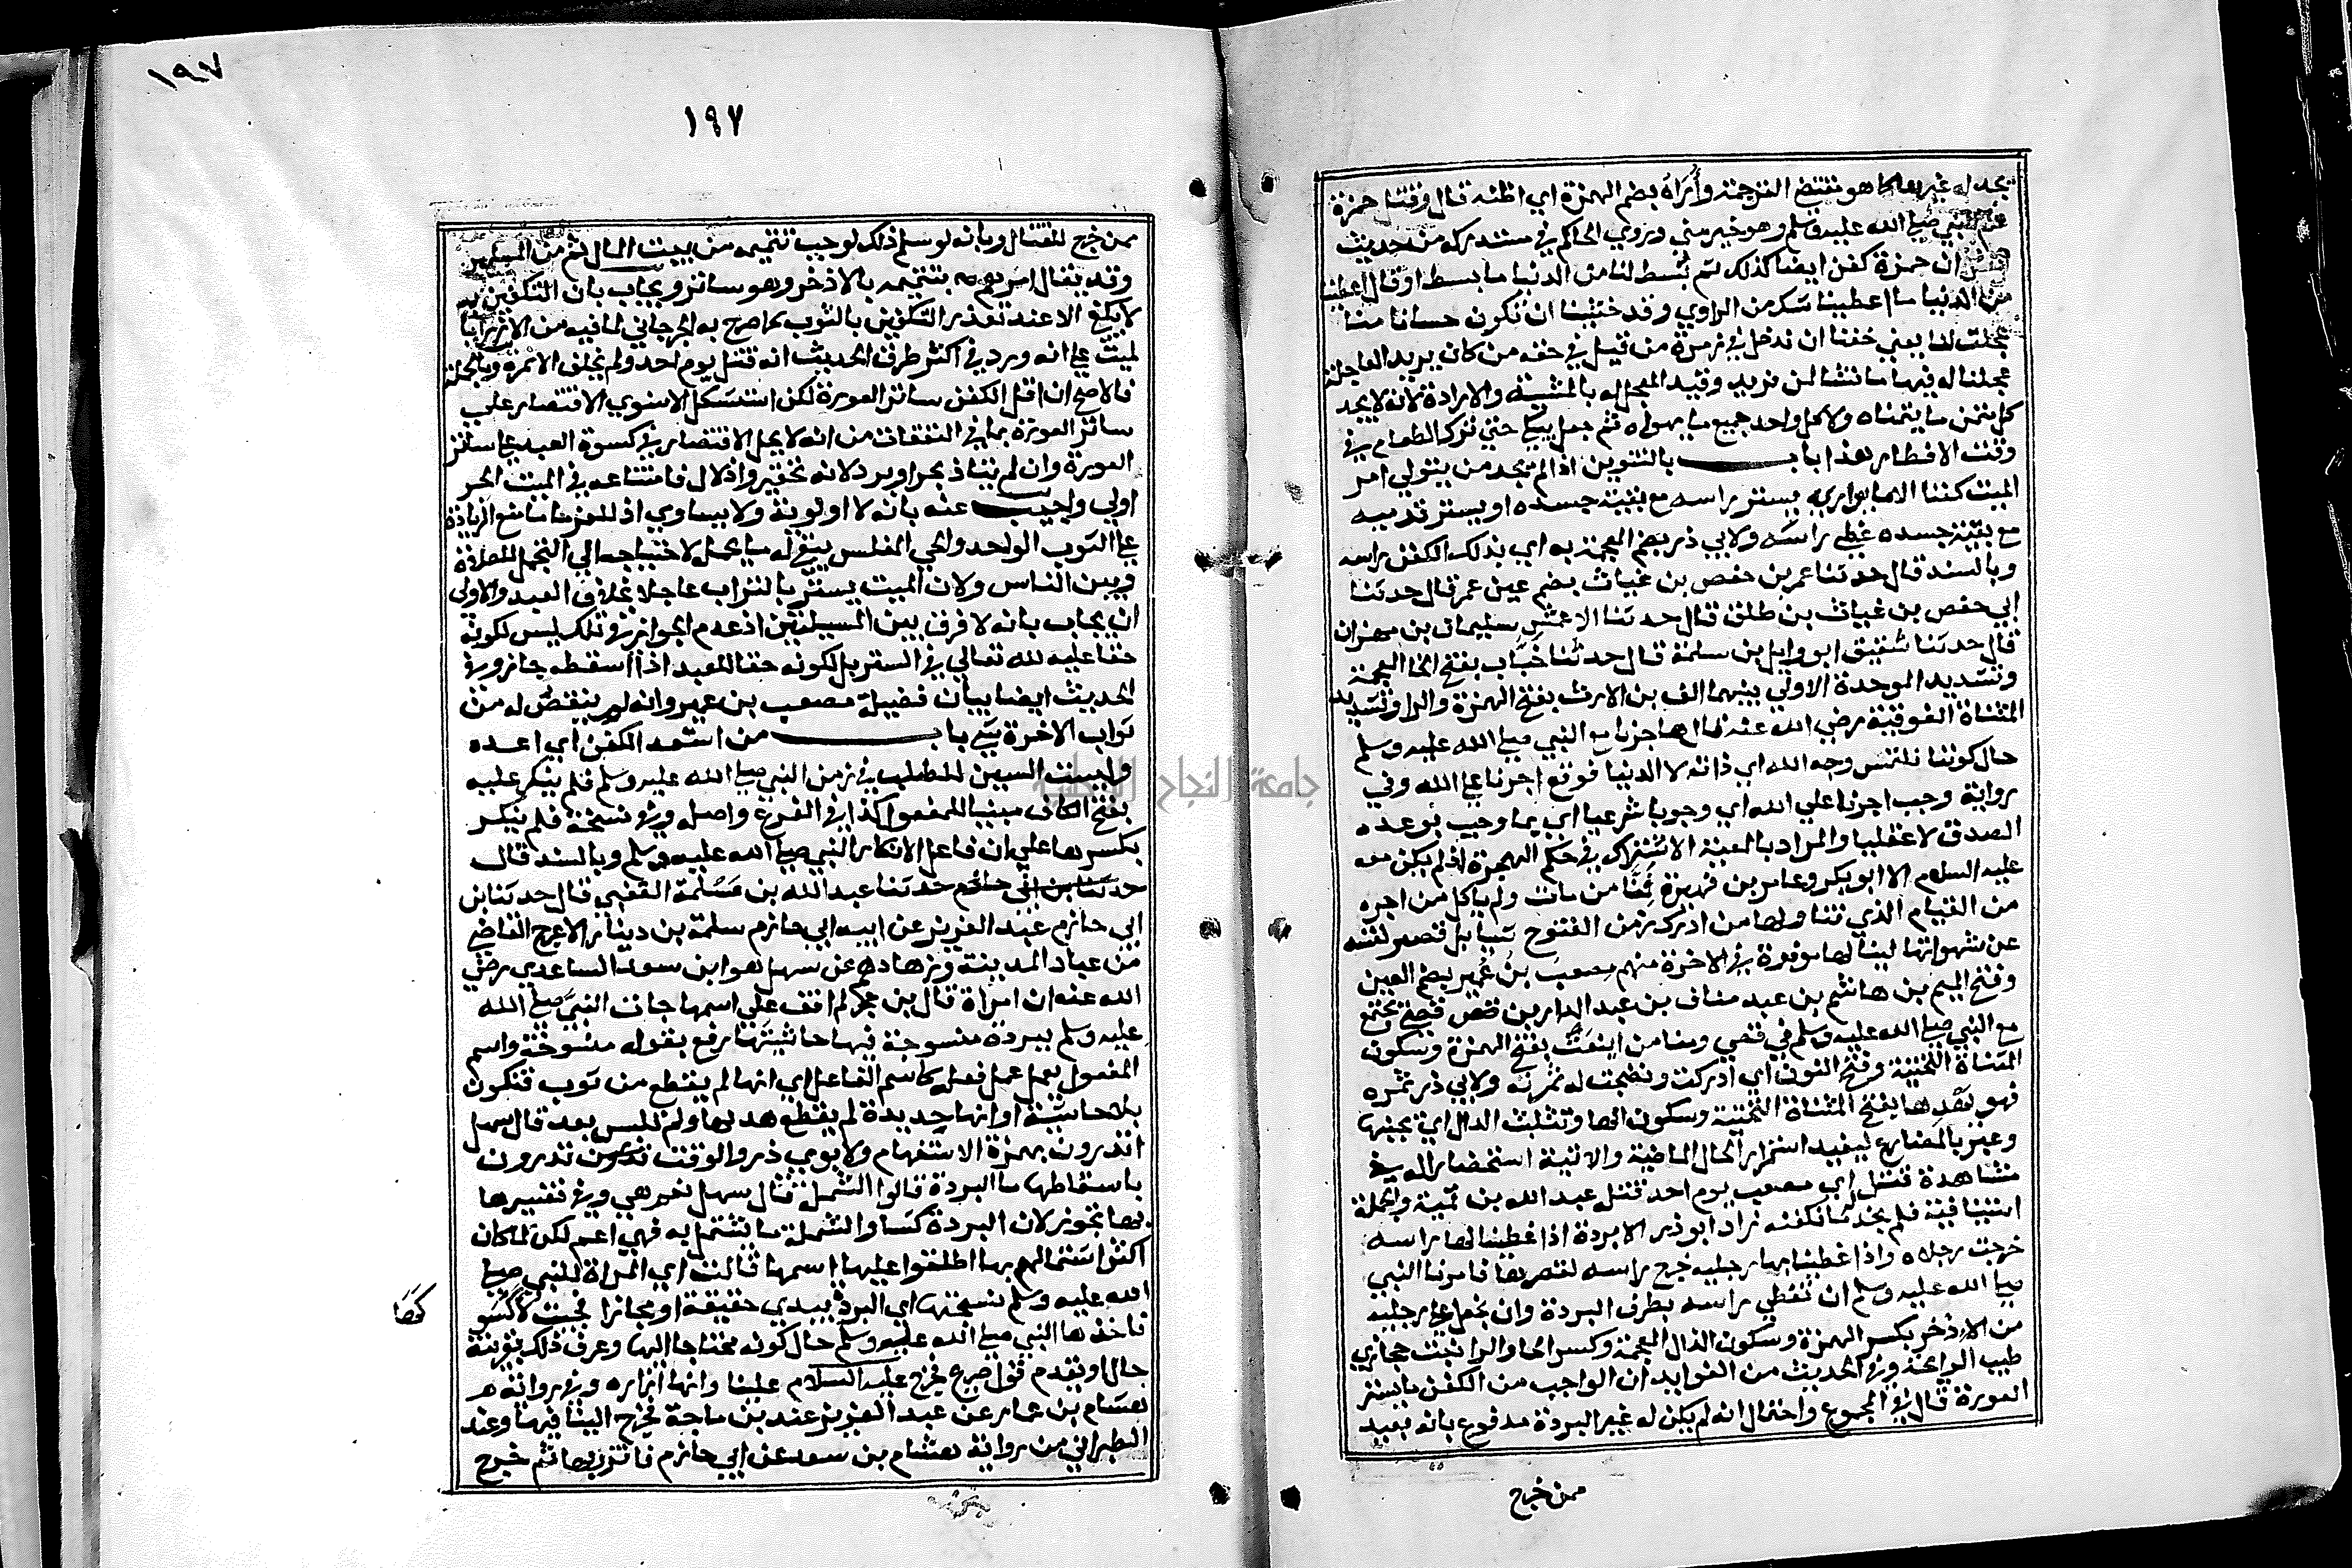 يجد له غيرها كما هو مقتضي الترجمة وأراه بضم الهمزة اي اظنه قال وقتل حمزة
عم النبي صلي الله عليه وسلم وهو خير مني وروي الحاكم في مستدركه من حديث
انس ان حمزة كفن ايضا كذلك ثم بسط لنا من الدنيا ما بسط او قال اعطينا
من الدنيا ما اعطينا شك من الراوي وقد خشينا ان تكون حسناتنا
عجلت لنا يعني خفنا ان ندخل في زمرة من قيل في حقه من كان يريد العاجلة
عجلنا له فيها ما نشا لمن نريد وقيد المعجل له بالمشيئة والارادة لانه لا يجد
كل متمن ما يتمناه ولا كل واحد جميع ما يهواه ثم جعل يبكي حتي ترك الطعام في
وقت الافطار هذا باب بالتنوين اذا لم يجد من يتولي امر
الميت كفنا الا ما يواري به يستر راسه مع بقية جسده او يستر قدميه
مع بقية جسده غطي راسه ولابي ذر بضم المعجمة به اي بذلك الكفن راسه
وبالسند قال حدثنا عمر بن حفص بن غياث بضم عين عمر قال حدثنا
ابي حفص بن غياث بن طلق قال حدثنا الاعمش سليمان بن مهران
قال حدثنا شقيق ابو وايل بن سلمة قال حدثنا خباب بفتح الخا المعجمة
وتشديد الموحدة الاولي بينهما الف بن الارت بفتح الهمزة والرا وتشديد
المثناة الفوقية رضي الله عنه قال هاجرنا مع النبي صلي الله عليه وسلم
حال كوننا نلتمس وجه الله اي ذاته لا الدنيا فوقع اجرنا علي الله وفي
رواية وجب اجرنا علي الله اي وجوبا شرعيا اي بما وجب بوعده
الصدق لا عقليا والمراد بالمعية الاشتراك في حكم الهجرة اذ لم يكن معه
عليه السلام الا ابو بكر وعامر بن فهيرة فمنا من مات ولم ياكل من اجره
من الغنايم الذي تناولها من ادرك زمن الفتوح شيا بل قصر نفسه
عن شهواتها لينالها موفرة في الاخرة منهم مصعب بن عمير بضم العين
وفتح الميم بن هاشم بن عبد مناف بن عبد الدار بن قصي يجتمع
مع النبي صلي الله عليه وسلم في قصي ومنا من اينعت بفتح الهمزة وسكون
المثناة التحتية وفتح النون اي ادركت ونضجت له ثمرته ولابي ذر ثمره
فهو يهدبها بفتح المثناة التحتية وسكون الها وتثليث الدال اي يجنيها
وعبر بالمضارع ليفيد استمرار الحال الماضية والاتية استحضارا له في
مشاهدة قتل اي مصعب يوم احد قتله عبد الله بن قمية والجملة
استينافية فلم نجد ما نكفنه زاد ابو ذر الا بردة اذا غطينا بها راسه
خرجت رجلاه واذا غطينا بها رجليه خرج راسه لقصرها فامرنا النبي
صلي الله عليه وسلم ان نغطي راسه بطرف البردة وان نجعل علي رجليه
من الاذخر بكسر الهمزة وسكون الذال المعجمة وكسر الخا والرا نبت حجازي
طيب الرايحة وفي الحديث من الفوايد ان الواجب من الكفن ما يستر
العورة قال في المجموع واحتمال انه لم يكن له غير البردة مدفوع بانه بعيد
ممن خرج
١٩٧
١٩٧
ممن خرج للقتال وبانه لو سلم ذلك لوجب تتميمه من بيت المال ثم من المسلمين
وقد يقال امرهم بتتميمه بالاذخر وهو ساتر ويجاب بان التكفين به
لا يكفي الا عند تعذر التكفين بالثوب كما صرح به الجرجاني لما فيه من الازرا
لميت علي انه ورد في اكثر طرق الحديث انه قتل يوم احد ولم يخلف الا نمرة وبالجملة
فالاصح ان اقل الكفن ساتر العورة لكن استشكل الاسنوي الاقتصار علي
ساتر العورة بما في النفقات من انه لا يحل الاقتصار في كسوة العبد علي ساتر
العورة وان لم يتاذ بحر او برد لانه تحقير واذلال فامتناعه في الميت الحر
اولي واجيب عنه بانه لا اولوية ولا يساوي اذ للغرما منع الزيادة
علي الثوب الواحد والحي المفلس يبقي له ما يجمل لاحتياجه الي التجمل للصلاة
وبين الناس ولان الميت يستر بالتراب عاجلا بخلاف العبد والاولي
ان يجاب بانه لا فرق بين المسيلتين اذ عدم الجواز في تلك ليس لكونه
حقا عليه لله تعالي في الستر بل لكونه حقا للعبد اذا اسقطه جاز وفي
الحديث ايضا بيان فضيلة مصعب بن عمير وانه لم ينقص له من
ثواب الاخرة شي باب من استعد الكفن اي اعده
وليست السين للطلب في زمن النبي صلي الله عليه وسلم فلم ينكر عليه
بفتح الكاف مبنيا للمفعول كذا في الفرع واصله وفي نسخة فلم ينكر
بكسرها علي ان فاعل الانكار النبي صلي الله عليه وسلم وبالسند قال
حدثنا بن ابي حازم حدثنا عبد الله بن مسلمة القعنبي قال حدثنا بن
ابي حازم عبد العزيز عن ابيه ابي حازم سلمة بن دينار الاعرج القاضي
من عباد المدينة وزهادهم عن سهل هو ابن سعد الساعدي رضي
الله عنه ان امراة قال بن حجر لم اقف علي اسمها جات النبي صلي الله
عليه وسلم ببردة منسوجة فيها حاشيتها رفع بقوله منسوجة واسم
المفعول يعمل عمل فعله كاسم الفاعل اي انها لم يقطع من ثوب فتكون
بلا حاشية او انها جديدة لم يقطع هدبها ولم تلبس بعد قال سهل
اتدرون بهمزة الاستفهام ولابوي ذر والوقت تدرون تدرون
باسقاطها ما البردة قالوا الشملة قال سهل نعم هي وفي تفسيرها
بها تجوز لان البردة كسا والشملة ما تشتمل به فهي اعم لكن لما كان
اكثر اشتمالهم بها اطلقوا عليها اسمها قالت اي المراة للنبي صلي
الله عليه وسلم نسجتها اي البردة بيدي حقيقة او مجازا فجيت لاكسو
كها
فاخذها النبي صلي الله عليه وسلم حال كونه محتاجا اليها وعرف ذلك بقرينة
حال او تقدم قول صريح فخرج عليه السلام علينا وانها ازاره وفي رواية هـ
هشام بن عمار عن عبد العزيز عند بن ماجة فخرج الينا فيها وعند
الطبراني من رواية هشام بن سعد عن ابي حازم فاتزر بها ثم خرج
جامعة النجاح الوطنية